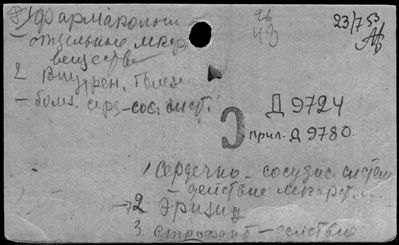 1) Фармакология
– отдельные лекар.
вещества
2 Внутрен. болез
– болез. серд-сос. сист.
43
23/7 53
Д 9724
прил. Д 9780.
1 Сердечно – сосудис. систем
– действие лекарст...
→ 2 Эризид
3. строфант – действие